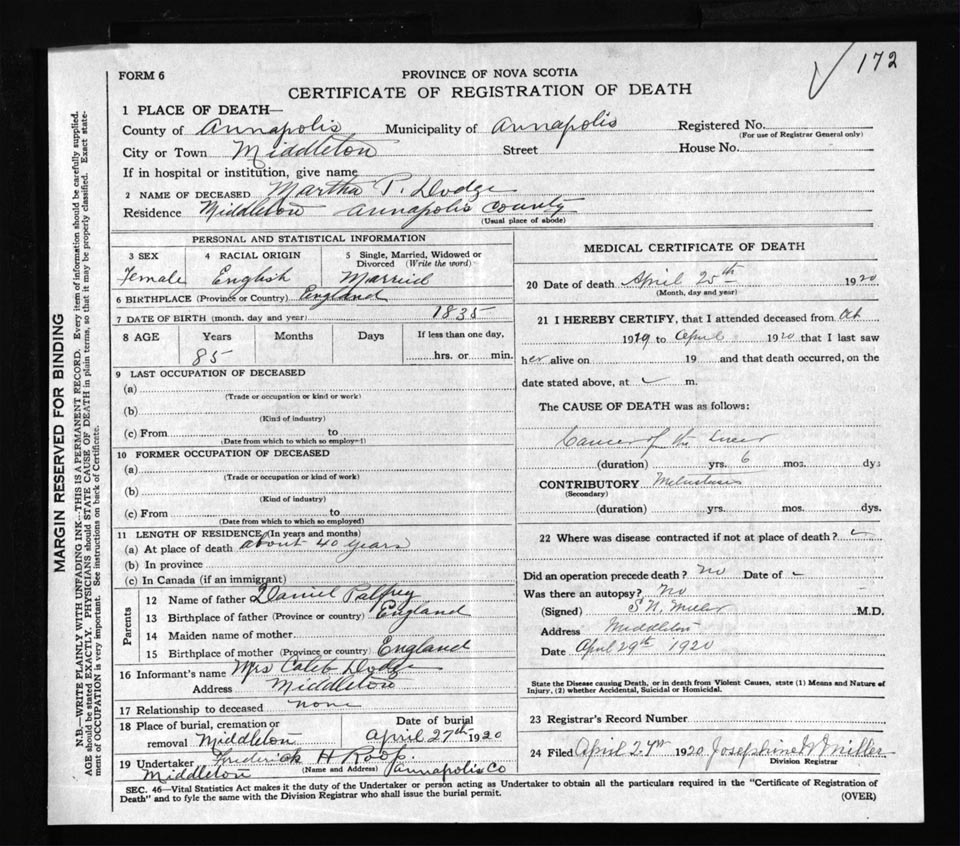 172
FORM 6
PROVINCE OF NOVA SCOTIA
CERTIFICATE OF REGISTRATION OF DEATH
1 PLACE OF DEATH—
County of Annapolis Municipality of Annapolis Registered No.
(For use of Registrar General only)
City or Town Middleton Street House No.
If in hospital or institution, give name
2 NAME OF DECEASED Martha P. Dodge
Residence Middleton Annapolis County
(Usual place of abode)
PERSONAL AND STATISTICAL INFORMATION
3 SEX 4 RACIAL ORIGIN 5 Single, Married, Widowed or
Divorced (Write the word)
Female English Married
6 BIRTHPLACE (Province or Country) England
7 DATE OF BIRTH (month, day and year) 1835
8 AGE Years Months Days If less than one day,
85 hrs. or min.
9 LAST OCCUPATION OF DECEASED
(a)
(Trade or occupation or kind or work)
(b)
(Kind of industry)
(c) From to
(Date from which to which so employed)
10 FORMER OCCUPATION OF DECEASED
(a)
(Trade or occupation or kind of work)
(b)
(Kind of industry)
(c) From to
(Date from which to which so employed)
11 LENGTH OF RESIDENCE (In years and months)
(a) At place of death about 40 years
(b) In province
(c) In Canada (if an immigrant)
Parents
12 Name of father Daniel Palfrey
13 Birthplace of father (Province or country) England
14 Maiden name of mother
15 Birthplace of mother (Province or country) England
16 Informant's name Mrs Caleb Dodge
Address Middleton
17 Relationship to deceased none
18 Place of burial, cremation or Date of burial
removal Middleton April 27th 1920
19 Undertaker Frederick H Roop.
(Name and Address)
Middleton Annapolis Co
MEDICAL CERTIFICATE OF DEATH
20 Date of death April 25th 1920
(Month, day and year)
21 I HEREBY CERTIFY, that I attended deceased from Oct
1919 to April 1920 that I last saw
her alive on 19 and that death occurred, on the
date stated above, at m.
The CAUSE OF DEATH was as follows:
Cancer of the Liver
(duration) yrs. 6 mos. dys
CONTRIBUTORY Metastases
(Secondary)
(duration) yrs. mos. dys.
22 Where was disease contracted if not at place of death?
Did an operation precede death? No Date of
Was there an autopsy? No
(Signed) S N. Miller M.D.
Address Middleton
Date April 29th 1920
State the Disease causing Death, or in death from Violent Causes, state (1) Means and Nature of
Injury, (2) whether Accidental, Suicidal or Homicidal.
23 Registrar's Record Number
24 Filed April 1920 Josephine W Miller
Division Registrar
SEC. 46—Vital Statistics Act makes it the duty of the Undertaker or person acting as Undertaker to obtain all the particulars required in the "Certificate of Registration of
Death" and to fyle the same with the Division Registrar who shall issue the burial permit.
(OVER)
MARGIN RESERVED FOR BINDING
N.B.—WRITE PLAINLY WITH UNFADING INK—THIS IS A PERMANENT RECORD. Every item of information should be carefully supplied.
AGE should be stated EXACTLY. PHYSICIANS should STATE CAUSE OF DEATH in plain terms, so that it may be properly classified. Exact state-
ment of OCCUPATION is very important. See instructions on back of Certificate.